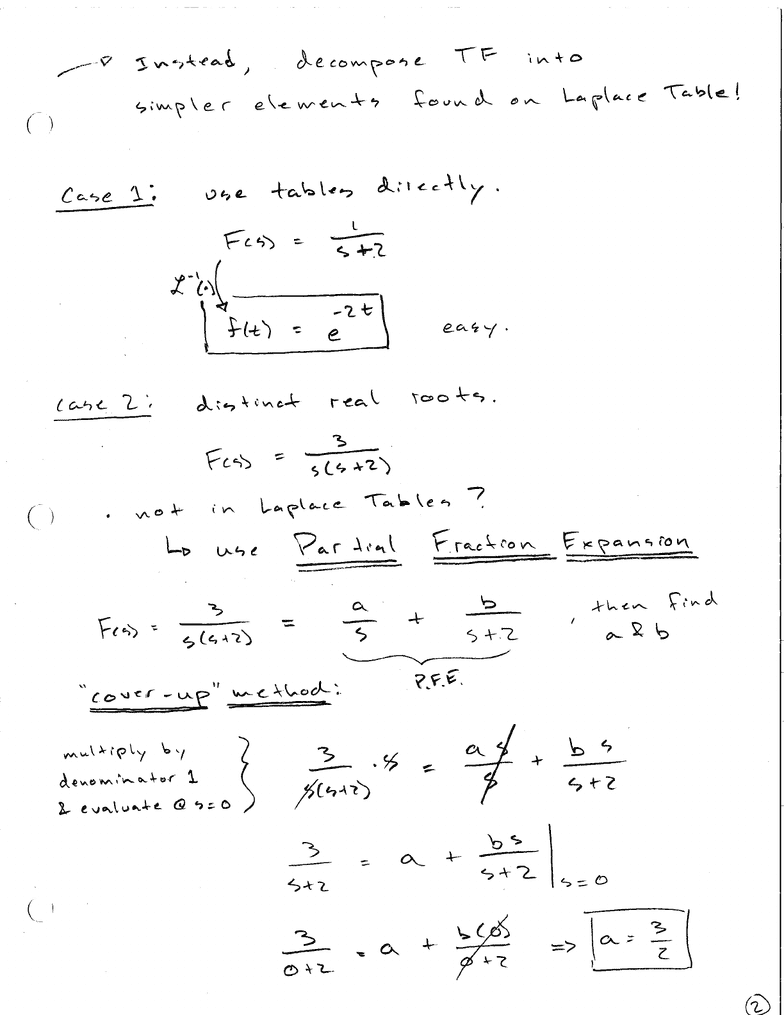 → Instead, decompose TF into
simpler elements found on Laplace Table!
Case 1: use tables directly.
F(s) = 1/(s+2)
ℒ⁻¹(·)
f(t) = e^(-2t) easy.
Case 2: distinct real roots.
F(s) = 3/(s(s+2))
· not in Laplace Tables?
↳ use Partial Fraction Expansion
F(s) = 3/(s(s+2)) = a/s + b/(s+2) , then find
a & b
P.F.E.
"cover-up" method:
multiply by
denominator 1
& evaluate @ s=0
3/(s(s+2)) · s = as/s + bs/(s+2)
3/(s+2) = a + bs/(s+2) |s=0
3/(0+2) = a + b(0)/(0+2) => a = 3/2
2